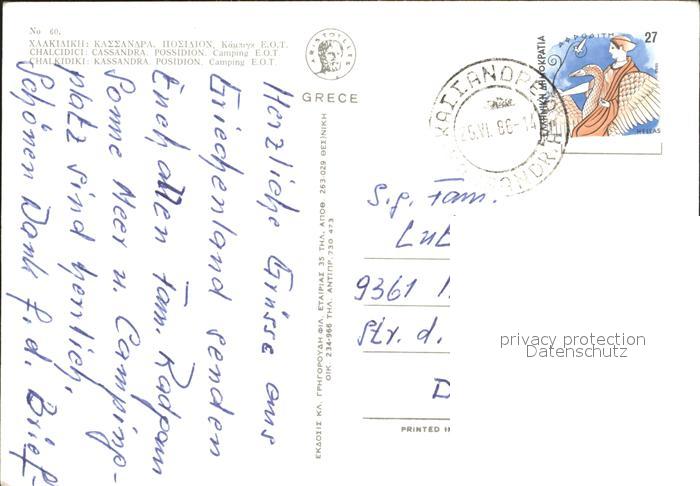 No 60.
ΧΑΛΚΙΔΙΚΗ: ΚΑΣΣΑΝΔΡΑ. ΠΟΣΙΔΙΟΝ. Κάμπιγκ Ε.Ο.Τ.
CHALCIDICI: CASSANDRA. POSSIDION. Camping E.O.T.
CHALKIDIKI: KASSANDRA. POSIDION. Camping E.O.T.
ARISTOTELES
GREECE
Herzliche Grüsse aus
Griechenland senden
Euch allen Fam.
Sonne Meer u. Camping-
platz sind herrlich.
Schönen Dank f. d. Brief-
ΕΚΔΟΣΙΣ ΚΛ. ΓΡΗΓΟΡΟΥΔΗ, ΦΙΛ. ΕΤΑΙΡΕΙΑΣ 35 ΤΗΛ. ΑΠΟΘ. 263-029 ΘΕΣ/ΝΙΚΗ
ΟΙΚ. 234-966 ΤΗΛ. ΑΝΤΙΠΡ. 730 473
ΑΦΡΟΔΙΤΗ
27
ΕΛΛΗΝΙΚΗ ΔΗΜΟΚΡΑΤΙΑ
HELLAS
ΚΑΣΣΑΝΔΡΕ
25.VI. 86-14
S.g. Fam.
9361
Str. d.
D
PRINTED I
privacy protection
Datenschutz